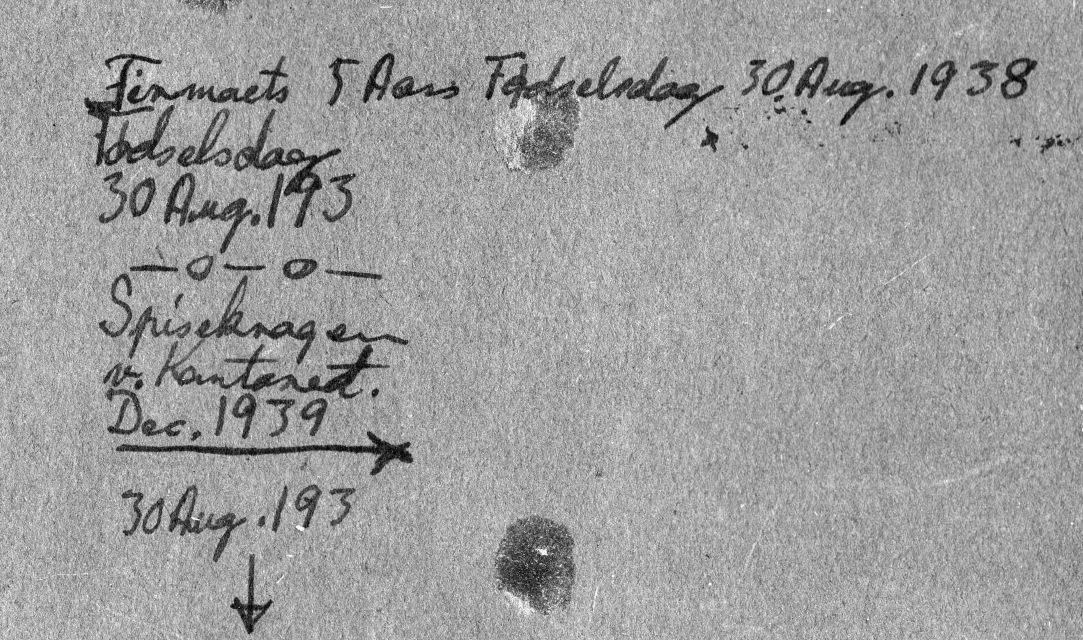 Finmaets 5 Aars Fødselsdag 30 Aug. 1938
Fødselsdag
30 Aug. 193
Spisekrogen
v.
Dec. 1939
30 Aug. 193